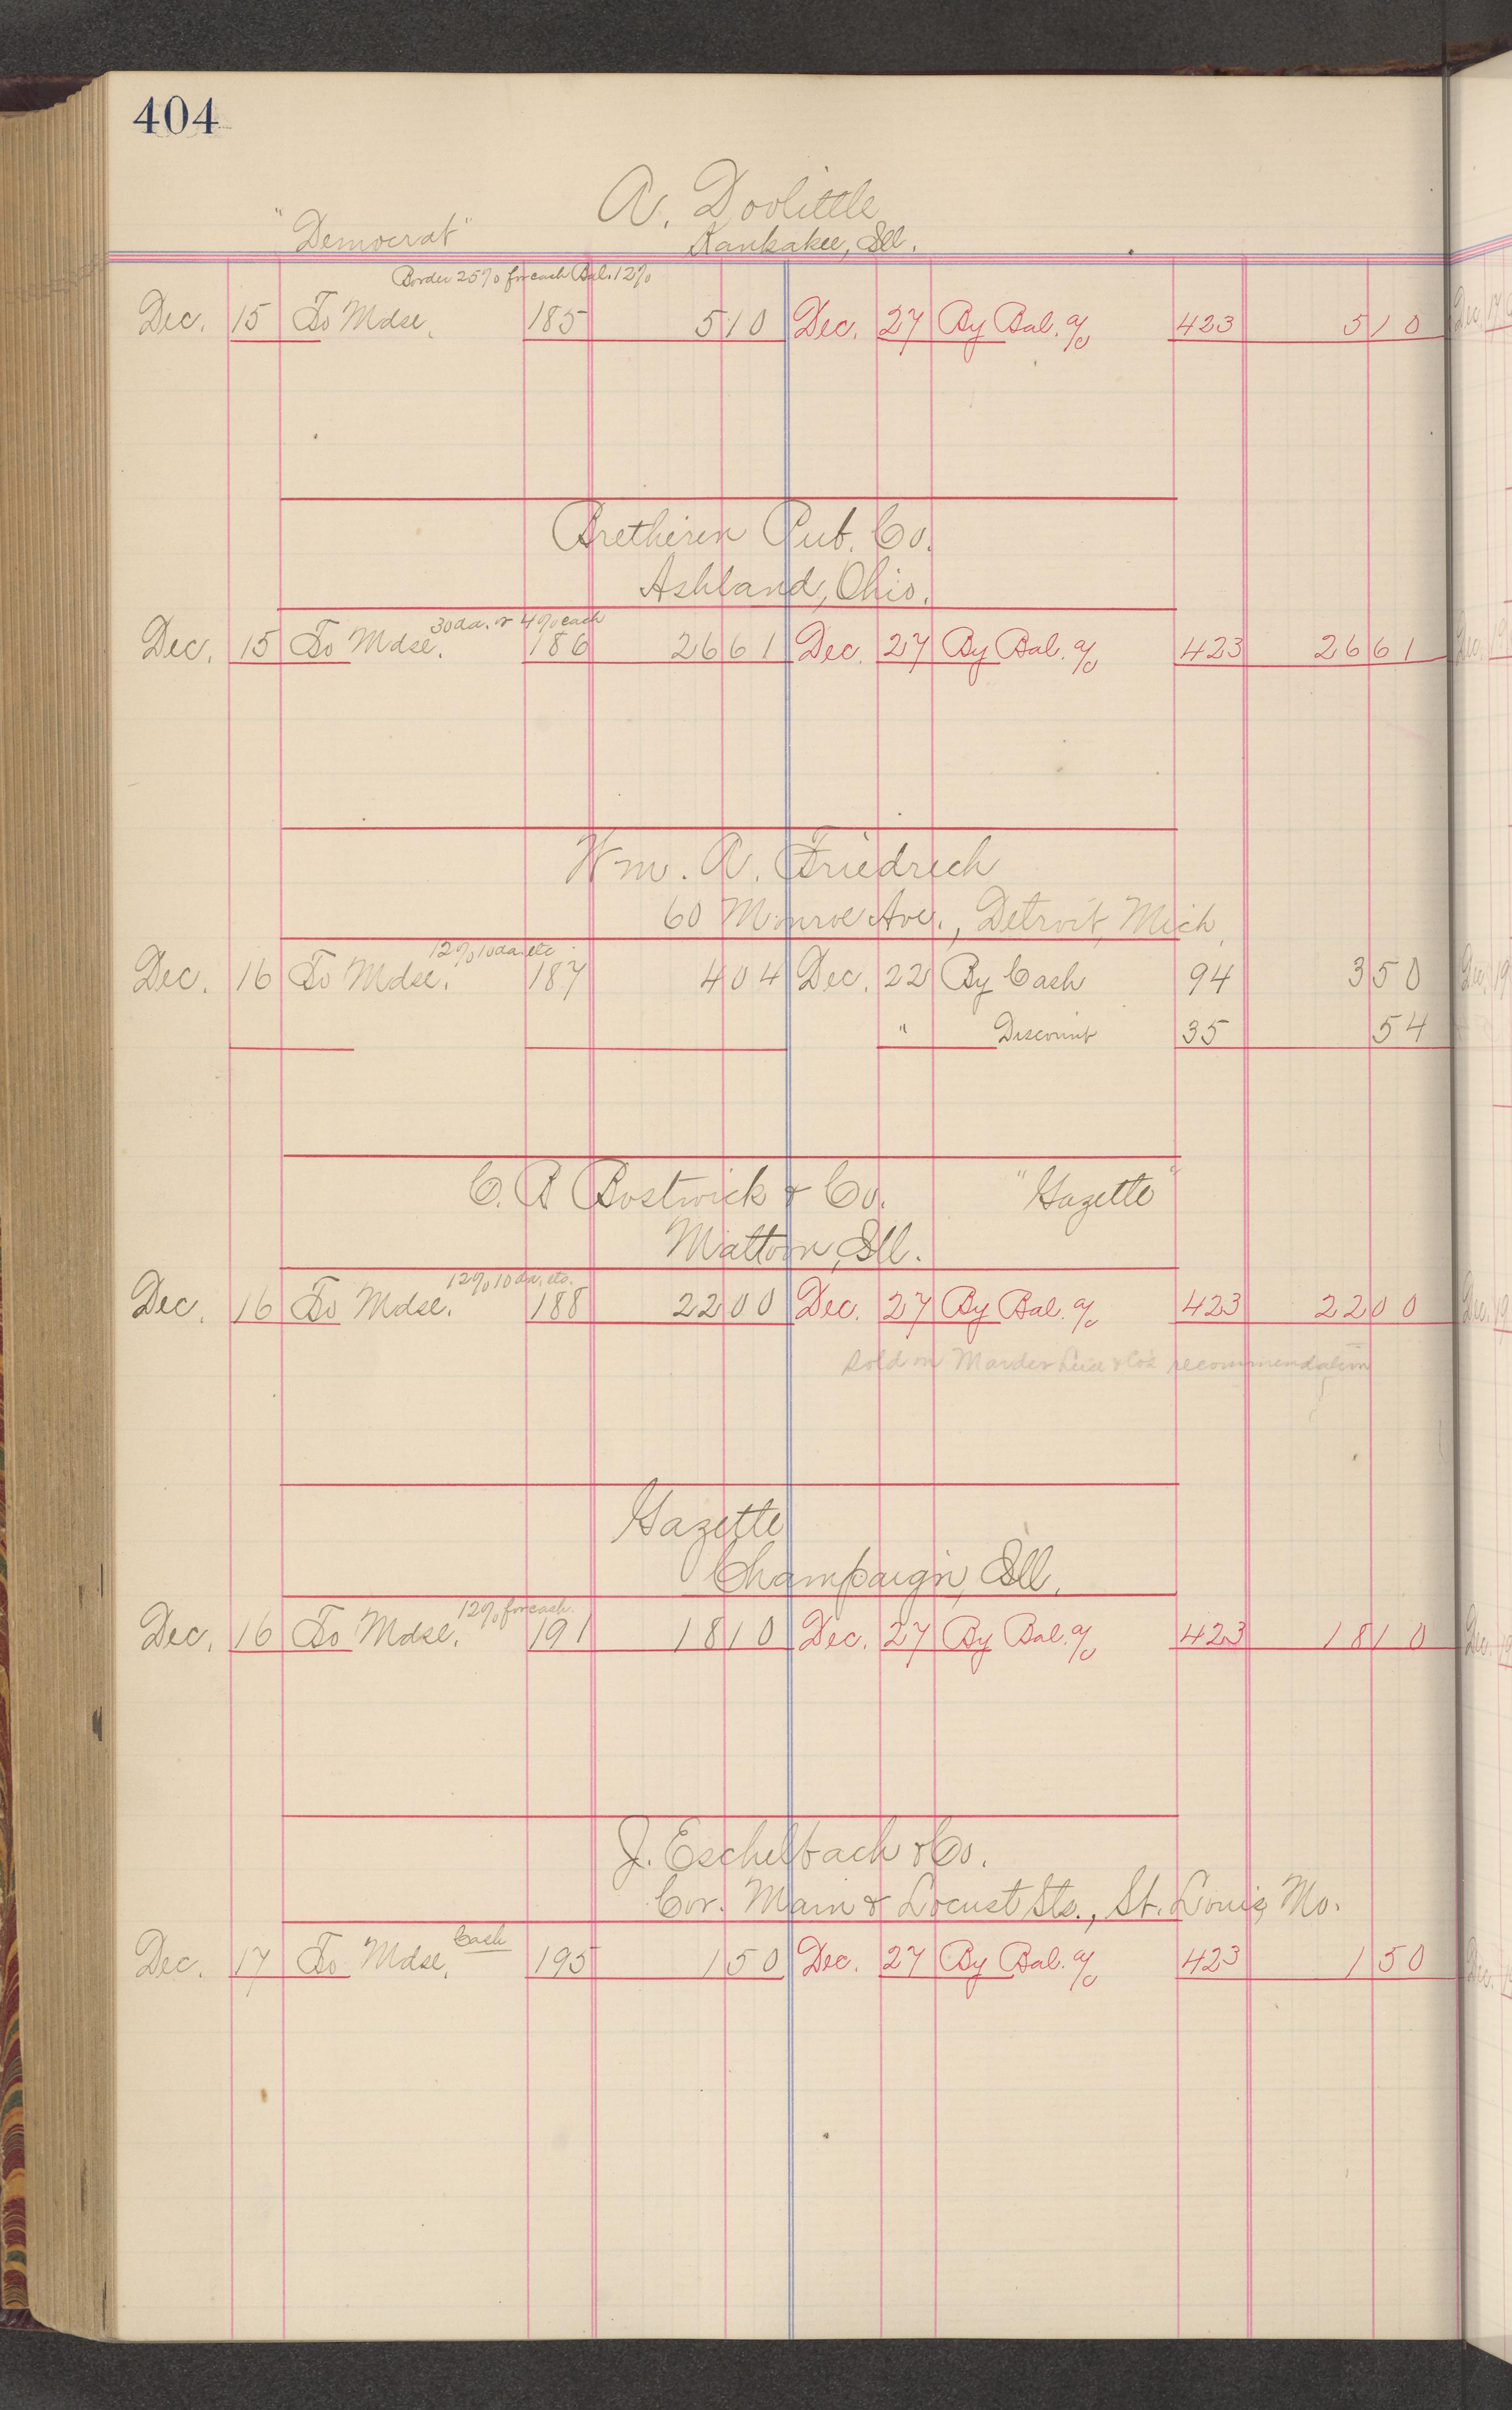 404
A. Doolittle
"Democrat"
Kankakee, Ill.
Border 25% for cash Bal. 12%
Dec. 15 To Mdse. 185 5 10 Dec. 27 By Bal. a/c 423 5 10
Bretheren Pub. Co.
Ashland, Ohio.
30 da. or 4% cash
Dec. 15 To Mdse. 186 26 61 Dec. 27 By Bal. a/c 423 26 61
Wm. A. Friedrich
60 Monroe Ave., Detroit, Mich.
12% 10 da. etc
Dec. 16 To Mdse. 187 4 04 Dec. 22 By Cash 94 3 50
" Discount 35 54
C. B Bostwick & Co. "Gazette"
Mattoon, Ill.
12% 10 da. etc.
Dec. 16 To Mdse. 188 22 00 Dec. 27 By Bal. a/c 423 22 00
Sold on Marder Luse & Co's recommendation
Gazette
Champaign, Ill.
12% for cash.
Dec. 16 To Mdse. 191 18 10 Dec. 27 By Bal. a/c 423 18 10
J. Eschelbach & Co.
Cor. Main & Locust Sts., St. Louis, Mo.
Cash
Dec. 17 To Mdse. 195 1 50 Dec. 27 By Bal. a/c 423 1 50